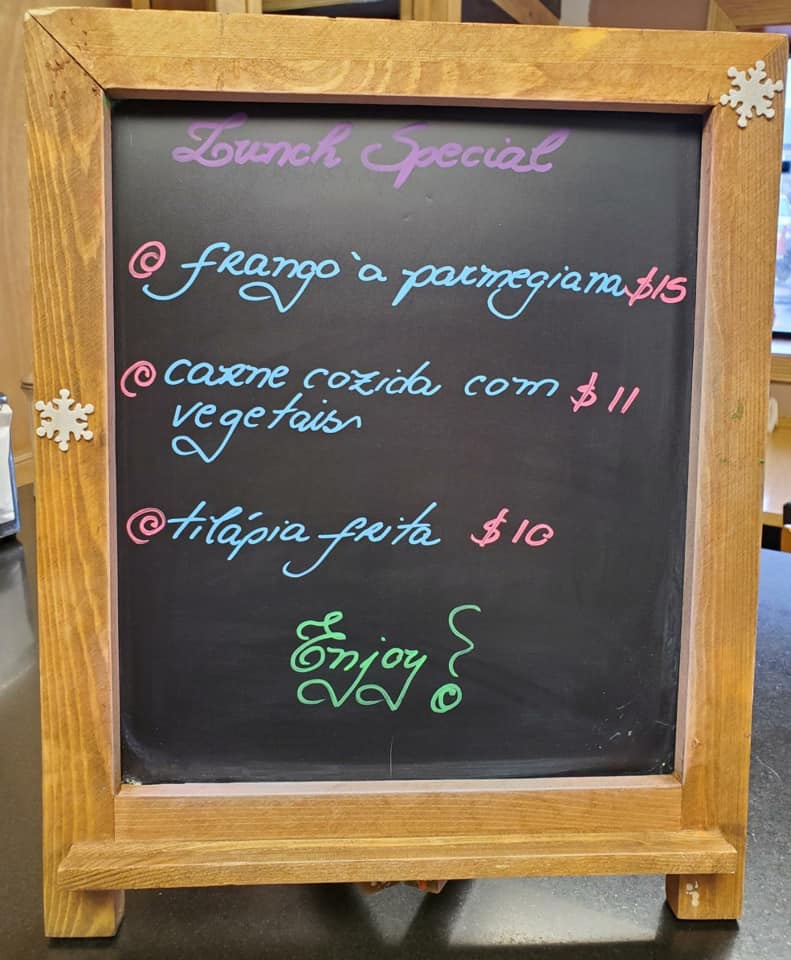 Lunch Special
frango à parmegiana $15
carne cozida com $11
vegetais
tilápia frita $10
Enjoy!